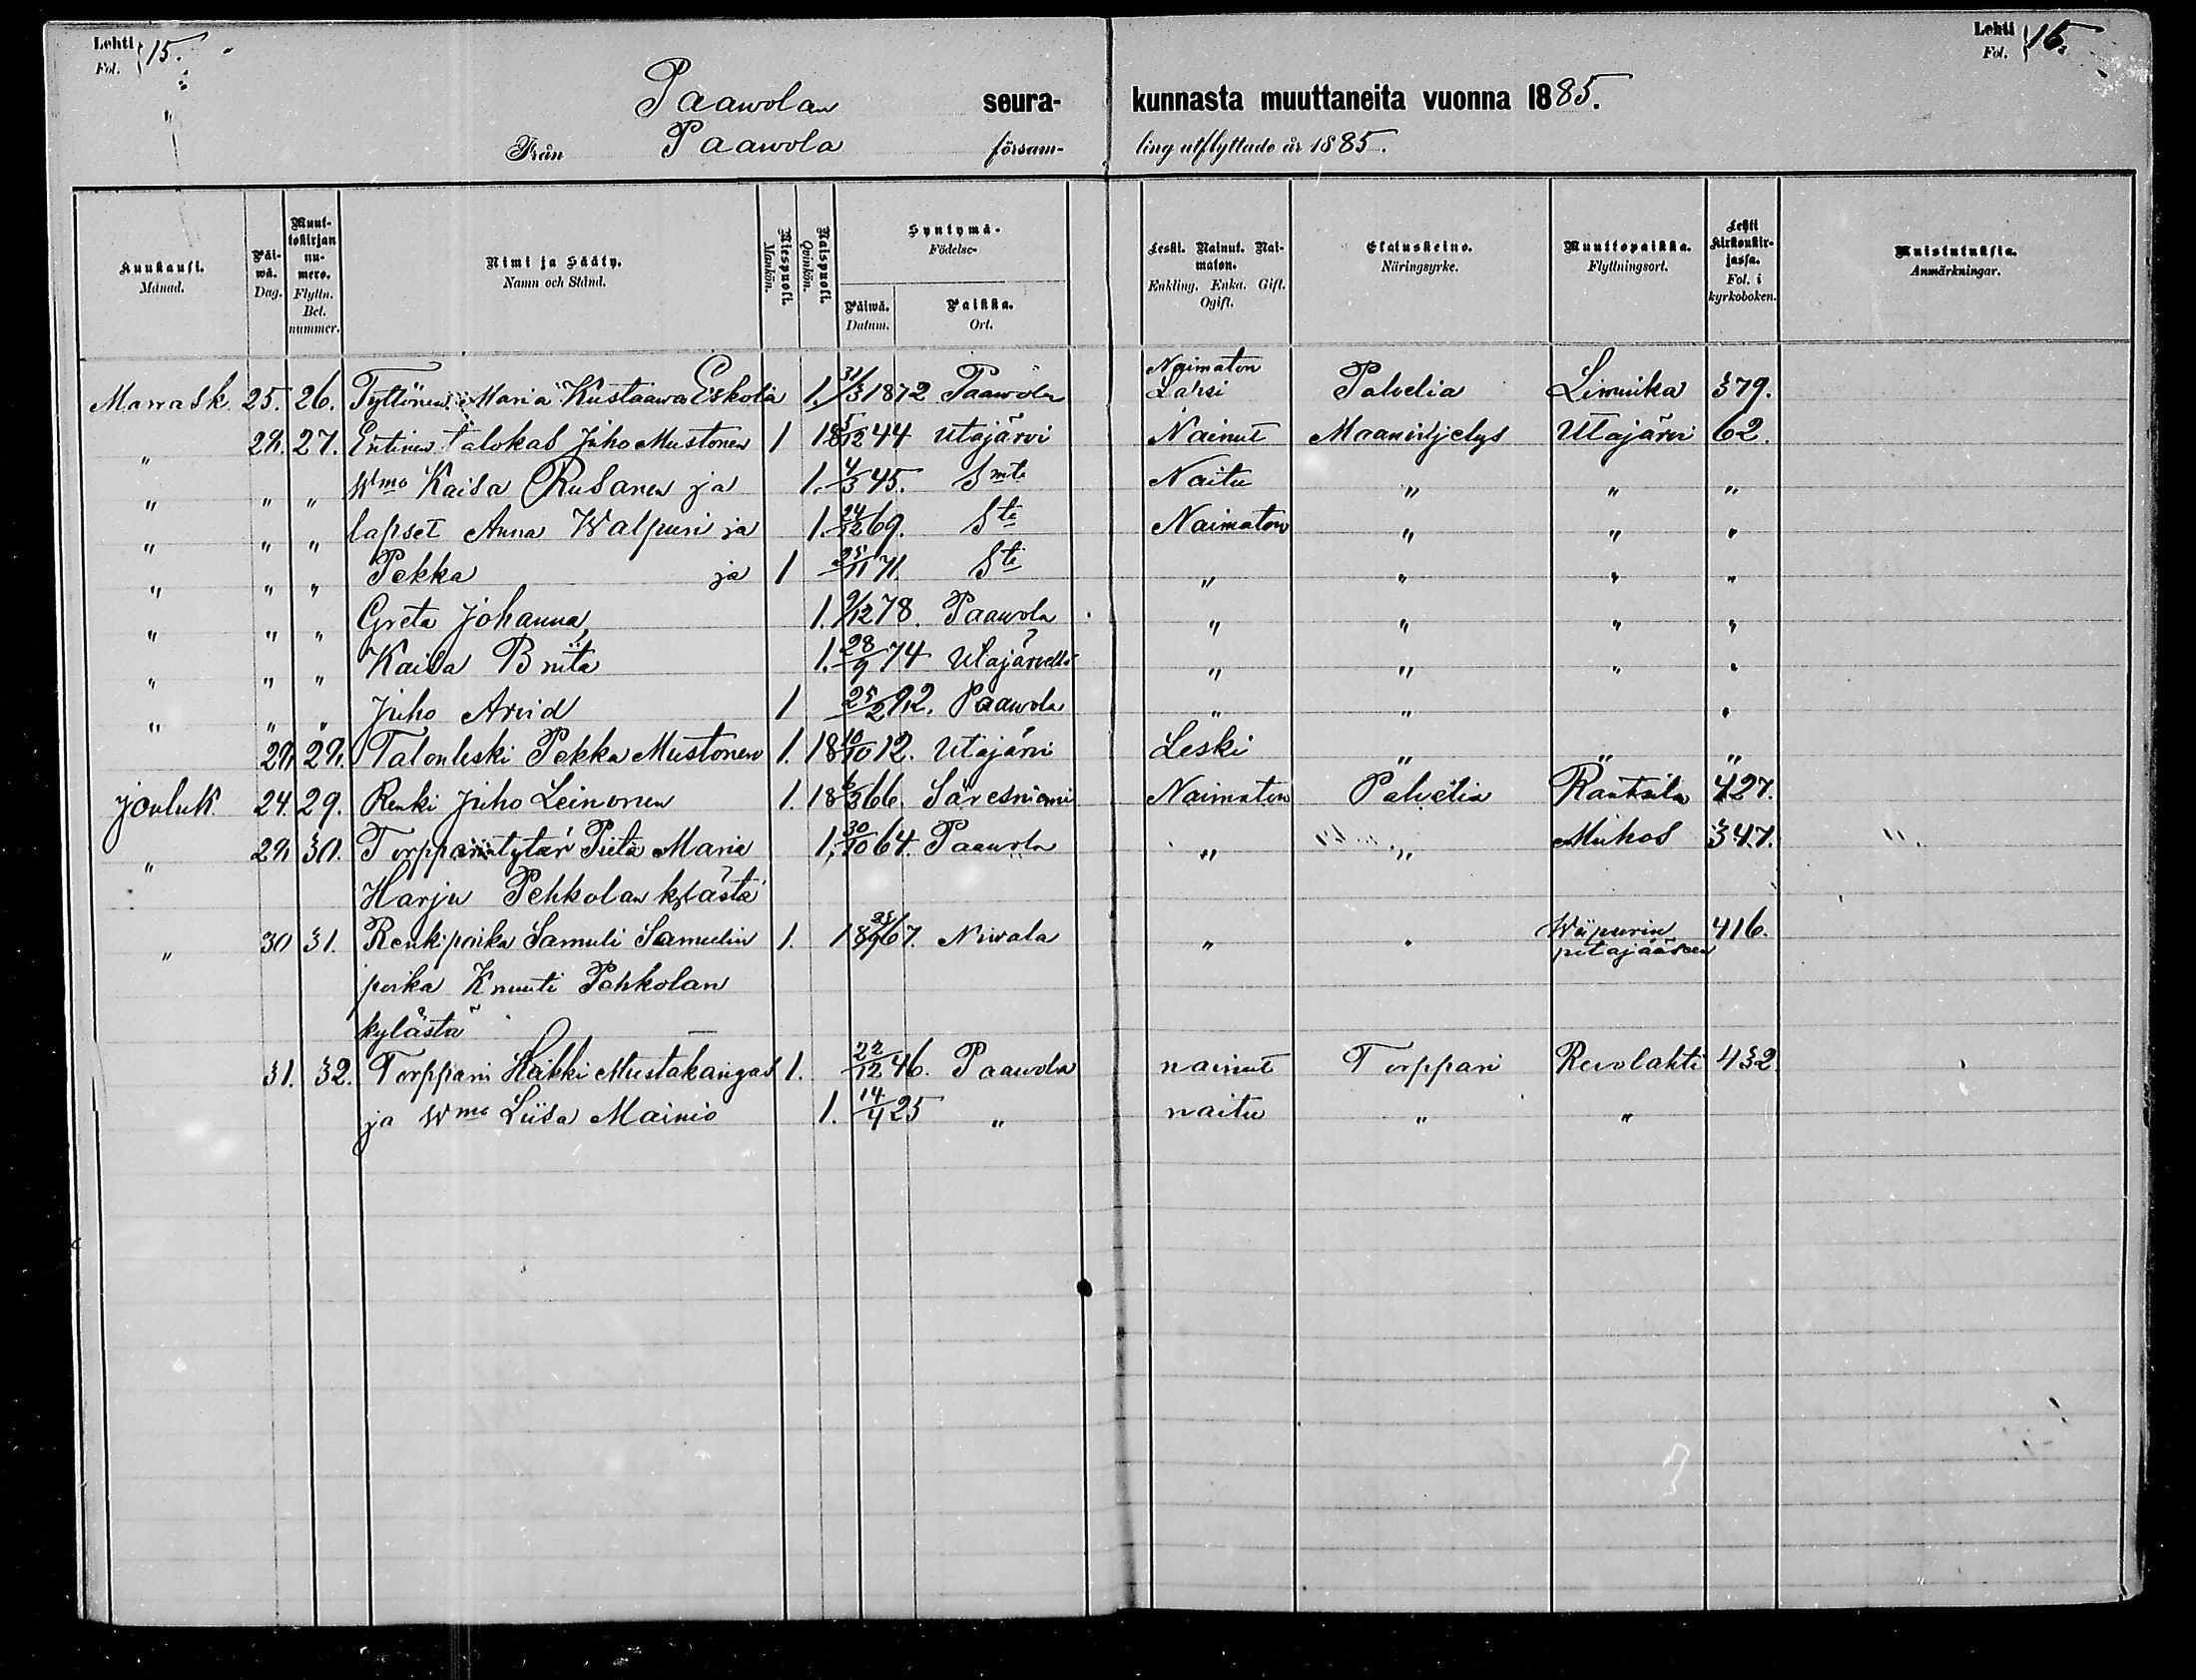 Lehti 15.
Fol.
Lehti 16.
Fol.
Paawolan seura- kunnasta muuttaneita vuonna 1885.
Från Paawola försam- ling utflyttade år 1885.
Kuukausi. Månad.
Päi-wä. Dag.
Muut-tokirjan nu-mero. Flyttn. Bet. nummer.
Nimi ja Sääty. Namn och Stånd.
Miespuoli. Mankön.
Naispuoli. Qvinkön.
Syntymä- Födelse-
Päiwä. Datum.
Paikka. Ort.
Leski. Nainut. Nai-maton. Enkling. Enka. Gift. Ogift.
Elatuskeino. Näringsyrke.
Muuttopaikka. Flyttningsort.
Lehti Kirkonkir-jassa. Fol. i kyrkoboken.
Muistutuksia. Anmärkningar.
Marrask. 25. 26. Tyttönen Maria Kustaawa Eskola 1. 31/3 1872 Paawola Naimaton Lapsi Palvelia Liminka 379.
" 28. 27. Entinen talokas Juho Mustonen 1 18 5/12 44 Utajärvi Nainut Maanviljelys Utajärvi 62.
" " " Wmo Kaisa Rusanen ja 1. 4/3 45. Smte Naitu " " "
" " " lapset Anna Walpuri ja 1. 24/12 69. Ste Naimaton " " "
" " " Pekka ja 1 25/11 71. Ste " " " "
" " " Greta Johanna, 1. 9/12 78. Paawola " " " "
" " " Kaisa Briita 1. 28/9 74 Utajärvellä " " " "
" " " Juho Arvid 1 25/2 82. Paawola " " "
28. 28. Talonleski Pekka Mustonen 1. 18 10/10 12. Utajärvi Leski " " "
Jouluk. 24. 29. Renki Juho Leinonen 1. 18 6/3 66. Säresniemi Naimaton Palvelia Rantsila 427.
" 28 30. Torpparintytär Piita Maria 1. 30/10 64. Paawola " " Muhos 347.
Harju Pehkolan kylästä
" 30 31. Renkipoika Samuli Samulin 1. 18 67. Nivala " " Wiipurin pitajääseen 416.
poika Knuuti Pehkolan
kylästä
31. 32. Torppari Heikki Mustakangas 1. 22/12 46. Paawola nainut Torppari Revolahti 432
ja Wmo Liisa Mainio 1. 14/4 25 " naitu " "